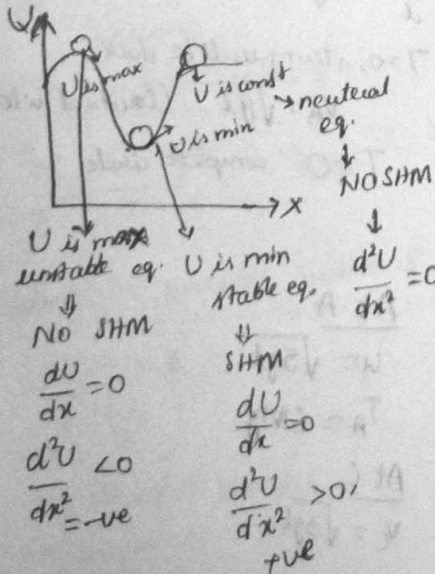 U
U is max
U is const
→ neutral eq.
U is min
⇓
NO SHM
↓
d²U/dx² = 0
→ x
U is max
unstable eq.
⇓
NO SHM
dU/dx = 0
d²U/dx² < 0
= -ve
U is min
stable eq.
⇓
SHM
dU/dx = 0
d²U/dx² > 0,
+ve